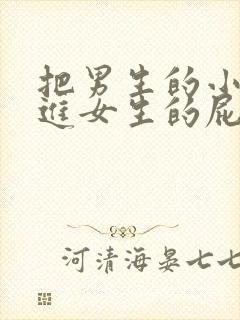 把男生的小
进女生的屁
河清海晏七七